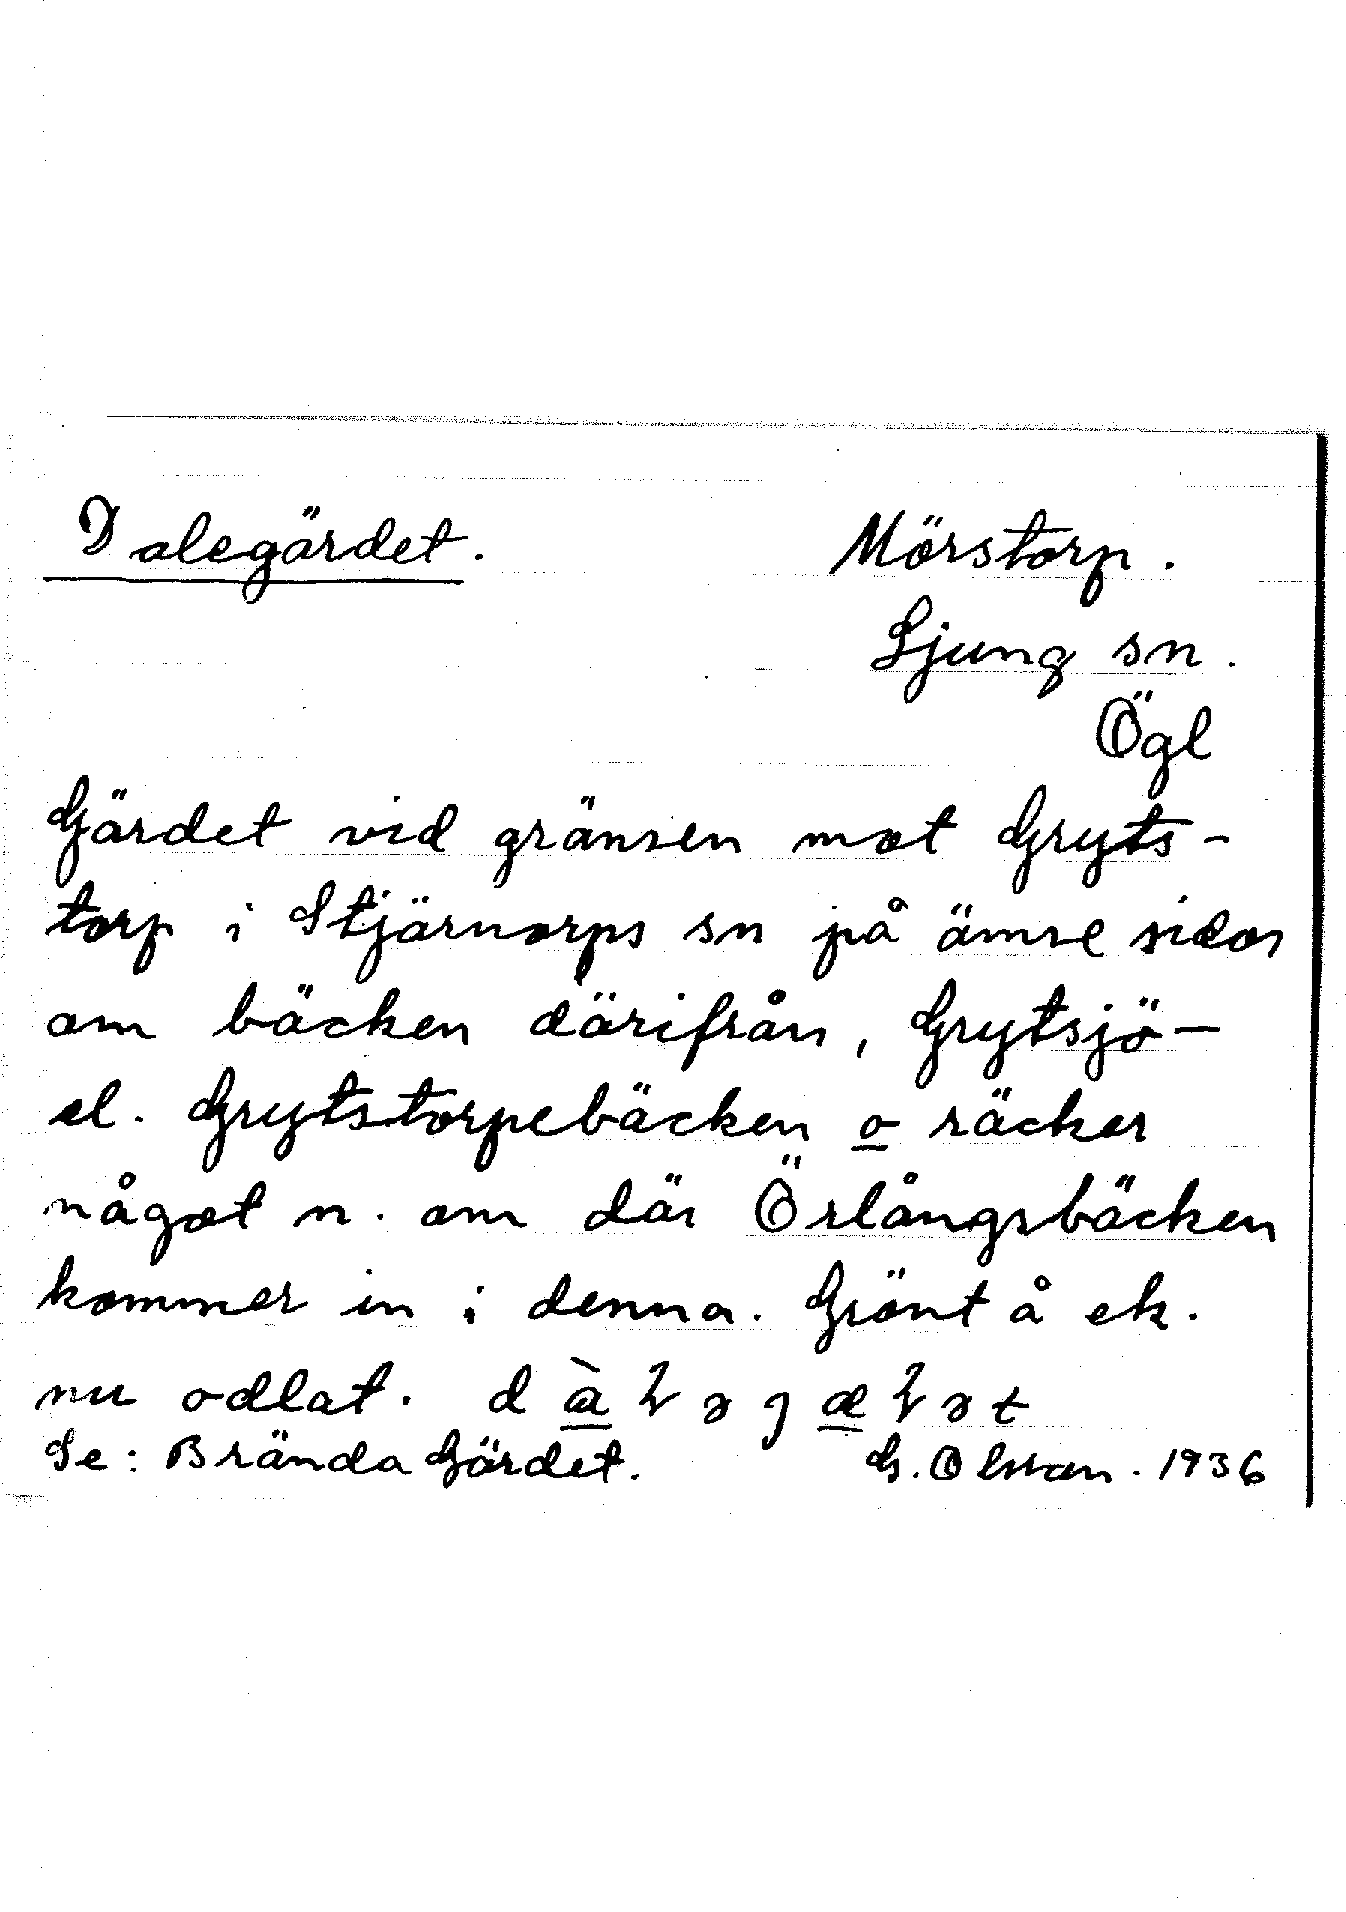 Dalegärdet. Mörstorp.
Ljung sn.
Ögl
Gärdet vid gränsen mot Gryts-
torp i Stjärnorps sn på ämse sidor
om bäcken därifrån, Grytsjö-
el. Grytstorpebäcken o räcker
något n. om där Örlångsbäcken
kommer in i denna. Grönt å ek.
nu odlat.
Se: Brända Gärdet. G. Olsson. 1936